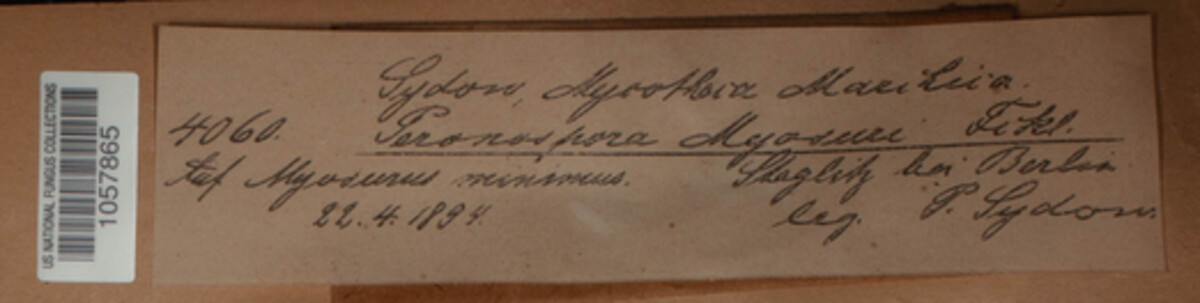 US NATIONAL FUNGUS COLLECTIONS
1057865
Sydow, Mycotheca Marchica.
4060. Peronospora Myosuri Fckl.
Auf Myosurus minimus. Steglitz bei Berlin
22.4.1894. leg. P. Sydow.